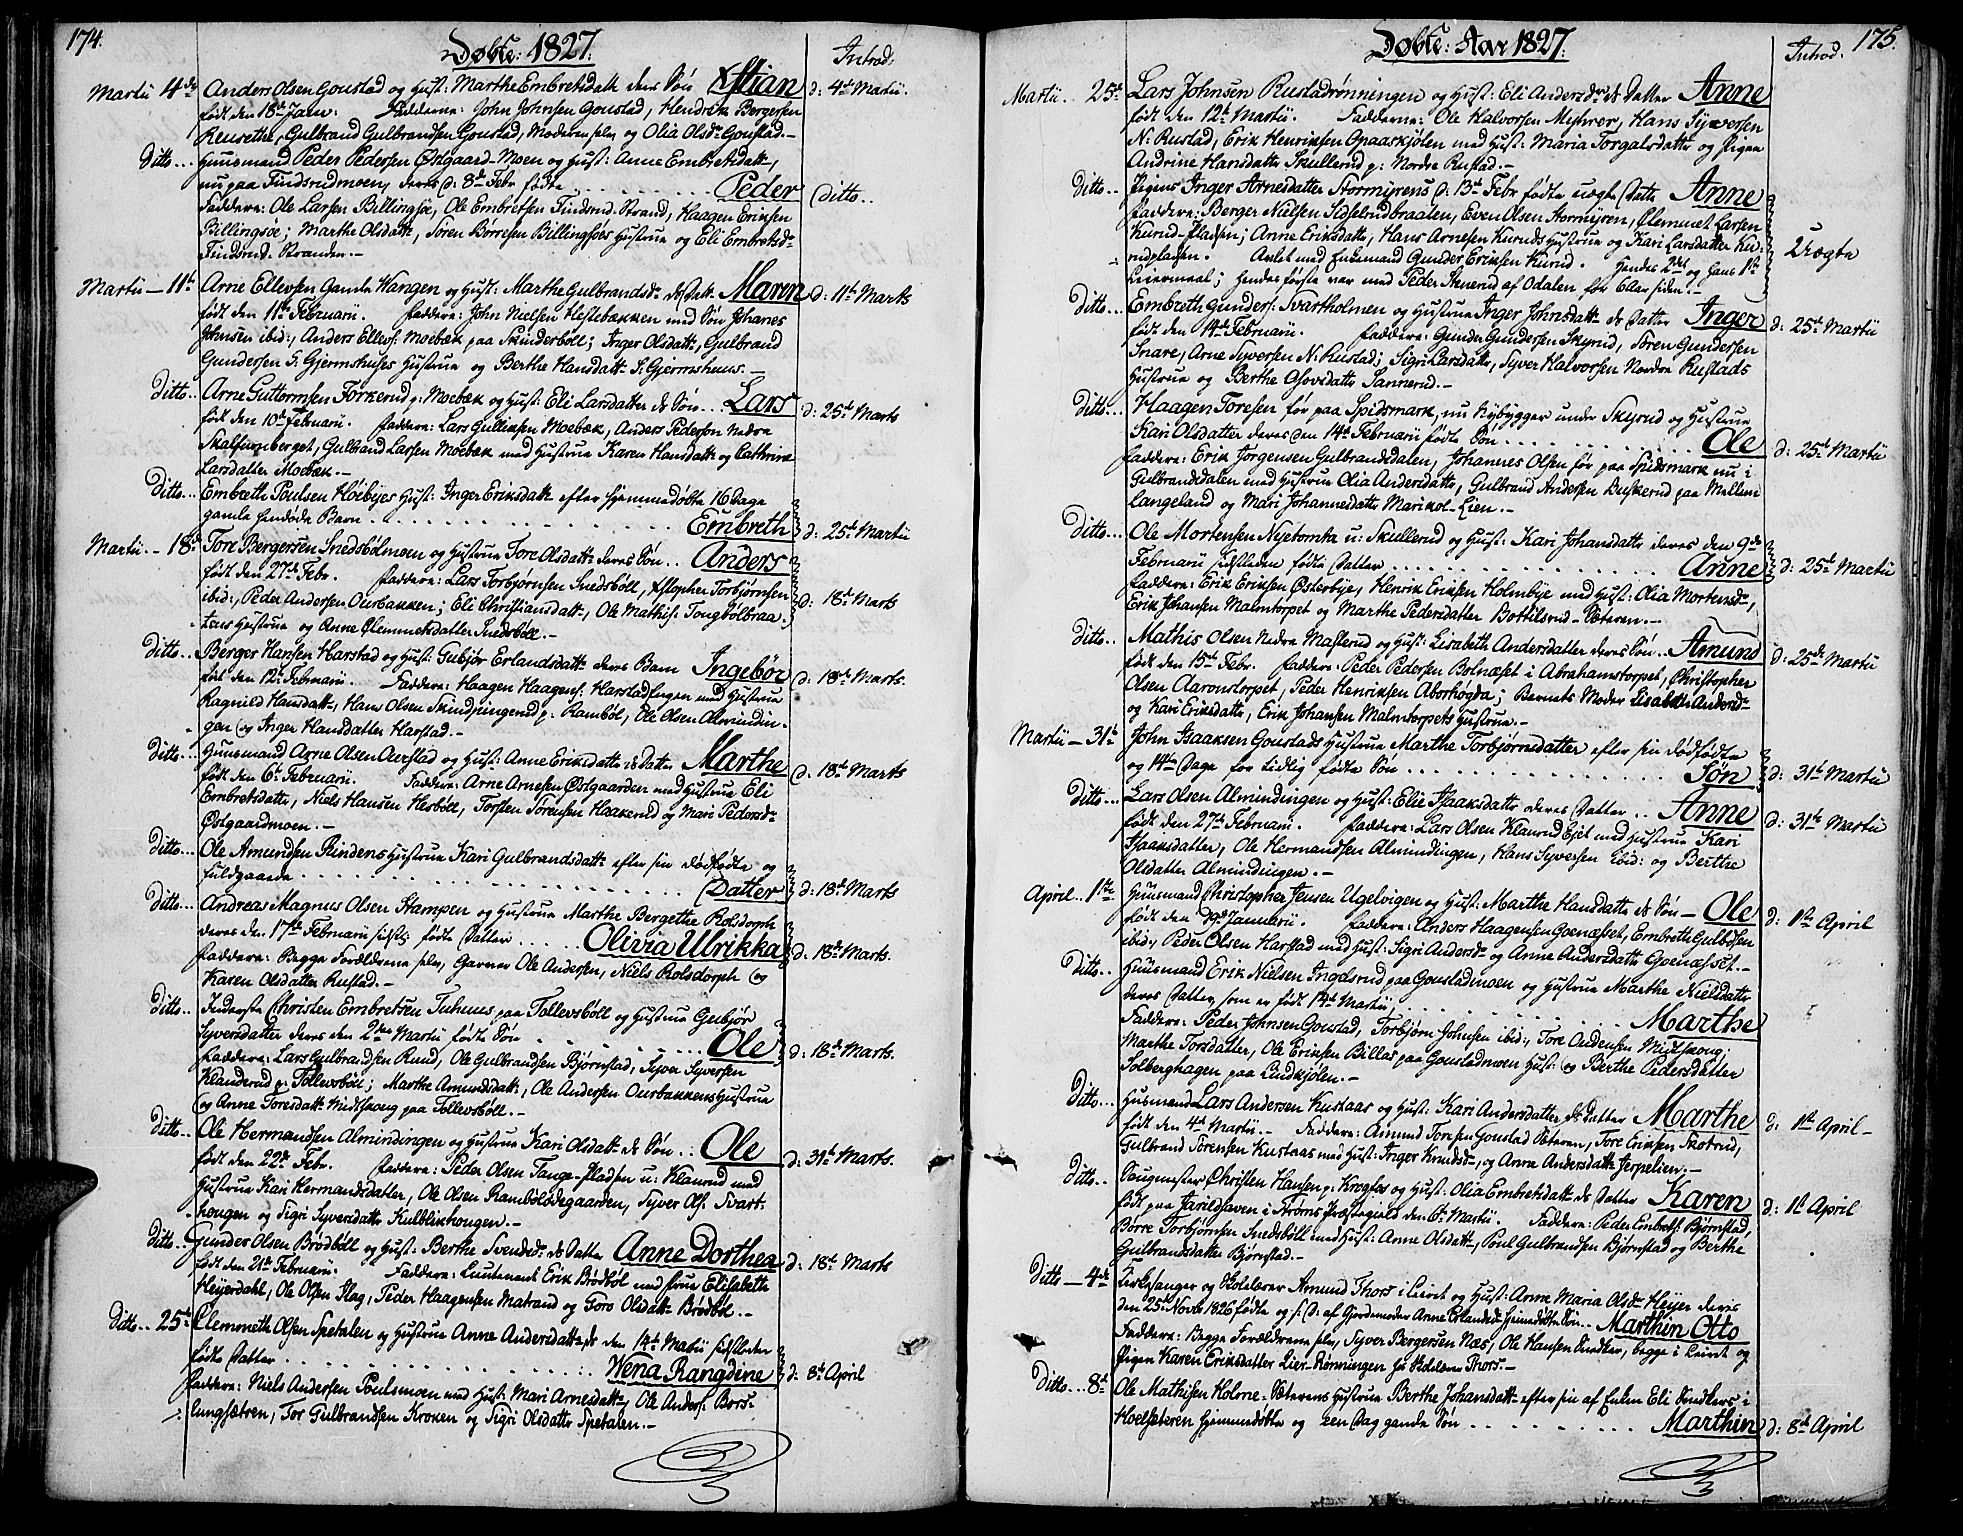 174.
Døbte: 1827.
Introd:
Martii 4de Anders Olsen Goustad og Hust: Marthe Embretsdatt deres Søn Xstian d: 4de Martii.
født den 18de Janv: Faddere: John Johnsen Goustad, Hendrik Bergersen
Reusethe, Gulbrand Gulbrandsen Goustad, Moderen selv og Olia Olsdr Goustad.
Ditto... Huusmand Peder Pedersen Østgaard-Moen og Hust: Anne Embretsdatt,
nu paa Findsrudmoen, deres d: 8de Febr fødte ........ Peder Ditto..
Faddere: Ole Larsen Billingsøe, Ole Embretsen Findsrud-Strand, Haagen Eriksen
Billingsøe; Marthe Olsdatt, Søren Børresen Billingsøes Hustrue og Eli Embretsd-
Findsrud-Stranden.
Martii - 11te Arne Ellevsen Gamle Vangen og Hust: Marthe Gulbrandsd ds Datt. Maren d: 11te Marts
født den 11te Februarii. Faddere: John Nielsen Hestebækken med Søn Johanes
Johnsen ibid:, Anders Ellevs: Moebæk paa Skinderböll; Inger Olsdatt, Gulbrand
Gundersen S. Gjermshuses Hustrue og Berthe Hansdatt S. Gjermshuus.
Ditto.. Arne Guttormsen Torkerud p: Moebæk og Hust: Eli Larsdatter ds Søn ... Lars d: 25de Marts
født den 10de Februarii. Faddere: Lars Gulliksen Moebæk, Anders Pedersen Nedre
Skalfurnberget, Gulbrand Larsen Moebæk med Hustrue Karen Hansdatt og Cathrine
Larsdatter Moebæk.
Ditto... Embreth Poulsen Høiebyes Hust: Inger Eriksdatt efter hjemmedøbte 16 Dage
gamle hendøde Barn ........ Embreth d: 25de Martii
Martii - 18de Tore Bergersen Snedsbølmoen og Hustrue Tore Olsdatt deres Søn .. Anders
født den 27de Febr. Faddere: Lars Torbjørnsen Snedsböll, Xstopher Torbjørnsen d: 18de Marts
ibid:, Peder Andersen Ourbakken; Eli Christiansdatt, Ole Mathis: Tongbölbraa-
tens Hustrue og Anne Clemmetsdatter Snedsböll.
Ditto... Berger Hansen Harstad og Hust: Gubjør Erlandsdatt deres Barn Ingebör d: 18de Marts.
født den 12te Februarii. Faddere: Haagen Haagens: Harstadengen med Hustrue
Ragnild Hansdatt, Hans Olsen Skindpingerud p. Ramböl, Ole Olsen Almindin-
gen og Inger Hansdatter Harstad.
Ditto... Huusmand Arne Olsen Overstad og Hust: Anne Eriksdatt ds Datter Marthe d: 18de Marts
født den 6te Februarii. Faddere: Arne Arnesen Østgaarden med Hustrue Eli
Embretsdatter, Niels Hansen Hesböll, Torsten Sørensen Haakerud og Mari Pedersd-
Østgaardmoen.
Ditto... Ole Amundsen Rindens Hustrue Kari Gulbrandsdatt efter sin dødfødte og
fuldgaaede ........ Datter d: 18de Marts
Ditto.. Andreas Magnus Olsen Stampen og Hustrue Marthe Bergette Rolsdorph
deres den 17de Februarii sidstl: fødte Datter ..... Olivia Ulrikka d: 18de Marts.
Faddere: Begge Forældrene selv, Garver Ole Andersen, Niels Rolsdorph og
Karen Olsdatter Rustad.
Ditto.. Inderste Christen Embretsen Tuhuus paa Tollevsböll og Hustrue Gubjør
Syversdatter deres den 2den Martii fødte Søn ........ Ole d: 18de Marts.
Faddere: Lars Gulbrandsen Ruud, Ole Gulbrandsen Bjørnstad, Syver Syversen
Klanderud p: Tollevsböll; Marthe Amundsdatt, Ole Andersen Ourbakkens Hustrue
og Anne Toresdatt Midtskoug paa Tollevsböll.
Ditto... Ole Hermandsen Almindingen og Hustrue Kari Olsdatt ds Søn .. Ole d: 31te Marts.
født den 22de Febr. Faddere: Peder Olsen Tange-Pladsen u: Klanrud med
Hustrue Kari Hermandsdatter, Ole Olsen Rambölødegaarden, Syver Ols. Svart-
hougen og Sigri Syversdatt Kulblikhougen.
Ditto.. Gunder Olsen Brödböll og Hust: Berthe Svendsd ds Datter Anne Dorthea d: 18de Marts
født den 21de Februarii. Faddere: Lieutenant Erik Brödböl med Frue Elisabeth
Heyerdahl, Ole Olsen Flag, Peder Haagensen Matrand og Goro Olsdatt Brödböl.
Ditto.. 25de Clemmeth Olsen Spetalen og Hustrue Anne Andersdatt ds den 14de Martii sidstleden
fødte Datter ........ Wena Rangdine d: 8de April
Faddere: Niels Andersen Poulsmoen med Hust: Mari Arnesdatt, Ole Anders: Bors-
lungsætren, Tor Gulbrandsen Kroken og Sigri Olsdatt Spetalen.
175.
Døbte: Aar 1827.
Introd.
Martii.. 25de Lars Johnsen Rustadrønningen og Hust: Eli Andersdr ds Datter Anne
født den 12te Martii. Faddere: Ole Halvorsen Myhrer, Hans Syversen
N. Rustad, Erik Henriksen Opaaskjølen med Hust: Maria Torgalsdatt og Pigen
Andrine Hansdatter Skullerud p: Nordre Rustad.
Ditto.. Pigens Inger Arnesdatter Stormyrens d: 13de Febr fødte uægte Datter Anne
Faddere: Berger Nielsen Sidselrudbraaten, Even Olsen Stormyren, Clemmet Larsen
Kurud-Pladsen; Anne Eriksdatt, Hans Arnesen Kuruds Hustrue og Kari Larsdatter Ku- Uægte
rudpladsen. Avlet med Enkemand Gunder Eriksen Kurud. Hendes 2det og hans 1ste
Leiermaal; hendes første var med Peder Stenerud af Odalen for 6 Aar siden.
Ditto... Embreth Gunders: Svartholmen og Hustrue Inger Johnsdatt ds Datter Inger d: 25de Martii
født den 14de Februarii. Faddere: Gunder Gundersen Skyrud, Søren Gundersen
Snare, Arne Syversen N. Rustad; Sigri Larsdatter, Syver Halvorsen Nordre Rustads
Hustrue og Berthe Olsdatter Sannerud.
Ditto... Haagen Toresen før paa Spidsmark, nu Nybygger under Skyrud og Hustrue
Kari Olsdatter deres den 14de Februarii fødte Søn ........ Ole d: 25de Martii
Faddere: Erik Jørgensen Gulbrandsdalen, Johannes Olsen før paa Spidsmark nu i
Gulbrandsdalen med Hustrue Olia Andersdatter, Gulbrand Andersen Buskerud paa Mellem
Langeland og Mari Johannesdatter Marikol-Lien.
Ditto... Ole Mortensen Nyetomta u: Skullerud og Hust: Kari Johansdatter deres den 9de
Februarii sidstleden fødte Datter ........ Anne d: 25de Martii
Faddere: Erik Eriksen Østerbye, Henrik Eriksen Holmbye med Hust: Olia Mortensd-,
Erik Johansen Malmtorpet og Marthe Pedersdatter Bottilsrud-Sæteren.
Ditto... Mathis Olsen Nedre Masterud og Hust: Lisabeth Andersdatter deres Søn .. Amund d: 25de Martii
født den 15de Febr. Faddere: Peder Pedersen Bolnæset i Abrahamstorpet, Christopher
Olsen Aaronstorpet, Peder Henriksen Aborhøgda; Barnets Moder Lisabeth Andersd-
og Kari Eriksdatter, Erik Johansen Malmtorpets Hustrue.
Martii - 31te John Isaaksen Goustads Hustrue Marthe Torbjørnsdatter efter sin dødfødte
og 14ten Dage for tidlig fødte Søn ........ Søn d: 31te Martii
Ditto... Lars Olsen Almindingen og Hust: Elie Isaaksdatter deres Datter .. Anne d: 31te Martii
født den 27de Februarii. Faddere: Lars Olsen Klanrud Eiet med Hustrue Kari
Isaaksdatter, Ole Hermandsen Almindingen, Hans Syversen ibid: og Berthe
Olsdatter Almindingen.
April.. 1ste Huusmand Christopher Jensen Ugelvigen og Hust: Marthe Hansdatter ds Søn - Ole d: 1ste April
født den 29de Januarii. Faddere: Anders Haagensen Goenæsset, Embreth Gulbdsen
ibid:, Peder Olsen Harstad med Hust: Sigri Andersd- og Anne Andersdatter Goenæsset.
Ditto.. Huusmand Erik Nielsen Ingelsrud paa Goustadmoen og Hustrue Marthe Nielsdatter
deres Datter, som er født 14de Martii ........ Marthe
Faddere: Peder Johnsen Goustad, Torbjørn Johnsen ibid:, Tore Audensen Midtskoug,
Marthe Torsdatter, Ole Eriksen Billas paa Goustadmoen Hust: og Berthe Pedersdatter
Solberghagen paa Lindkjølen.
Ditto... Husmand Lars Andersen Kustaas og Hust: Kari Andersdatter ds Datter Marthe d: 1ste April
født den 4de Martii. Faddere: Amund Toresen Goustad Sæteren, Tore Eriksen Skotrud,
Gulbrand Sørensen Kustaas med Hust: Inger Knudsd-, og Anne Andersdatt Jerpelien.
Ditto.. Saugmester Christen Hansen p: Krogfos og Hust: Olia Embretsdatt ds Datter Karen d: 1te April
født paa Jarildshaven i Strøms Præstegield den 6te Martii. Faddere: Peder Embrets: Bjørnstad,
Börre Torbjørnsen Snedsböll med Hust: Anne Olsdatt, Poul Gulbrandsen Bjørnstad og Berthe
Gulbrandsdatter Bjørnstad.
Ditto - 4de Kirkesanger og Skolelærer Amund Thors i Leiret og Hust: Anne Maria Olsdr Heyer deres
den 25de Novbr 1826 fødte og s: D: af Gjordemoder Anne Erlandsd: hjemdøbte Søn.. Marthin Otto
Faddere: Begge Forældrene selv, Syver Bergersen Næs, Ole Hansen Snedker, begge i Leiret og
Pigen Karen Eriksdatter Lier-Rønningen hos Skolelærer Thors.
Ditto... 8de Ole Mathisen Holme-Sæterens Hustrue Berthe Johansdatt efter sin af Enken Eli Snedkers i
Hoelsæteren hjemmedøbte og een Dag gamle Søn ........ Marthin d: 8de April